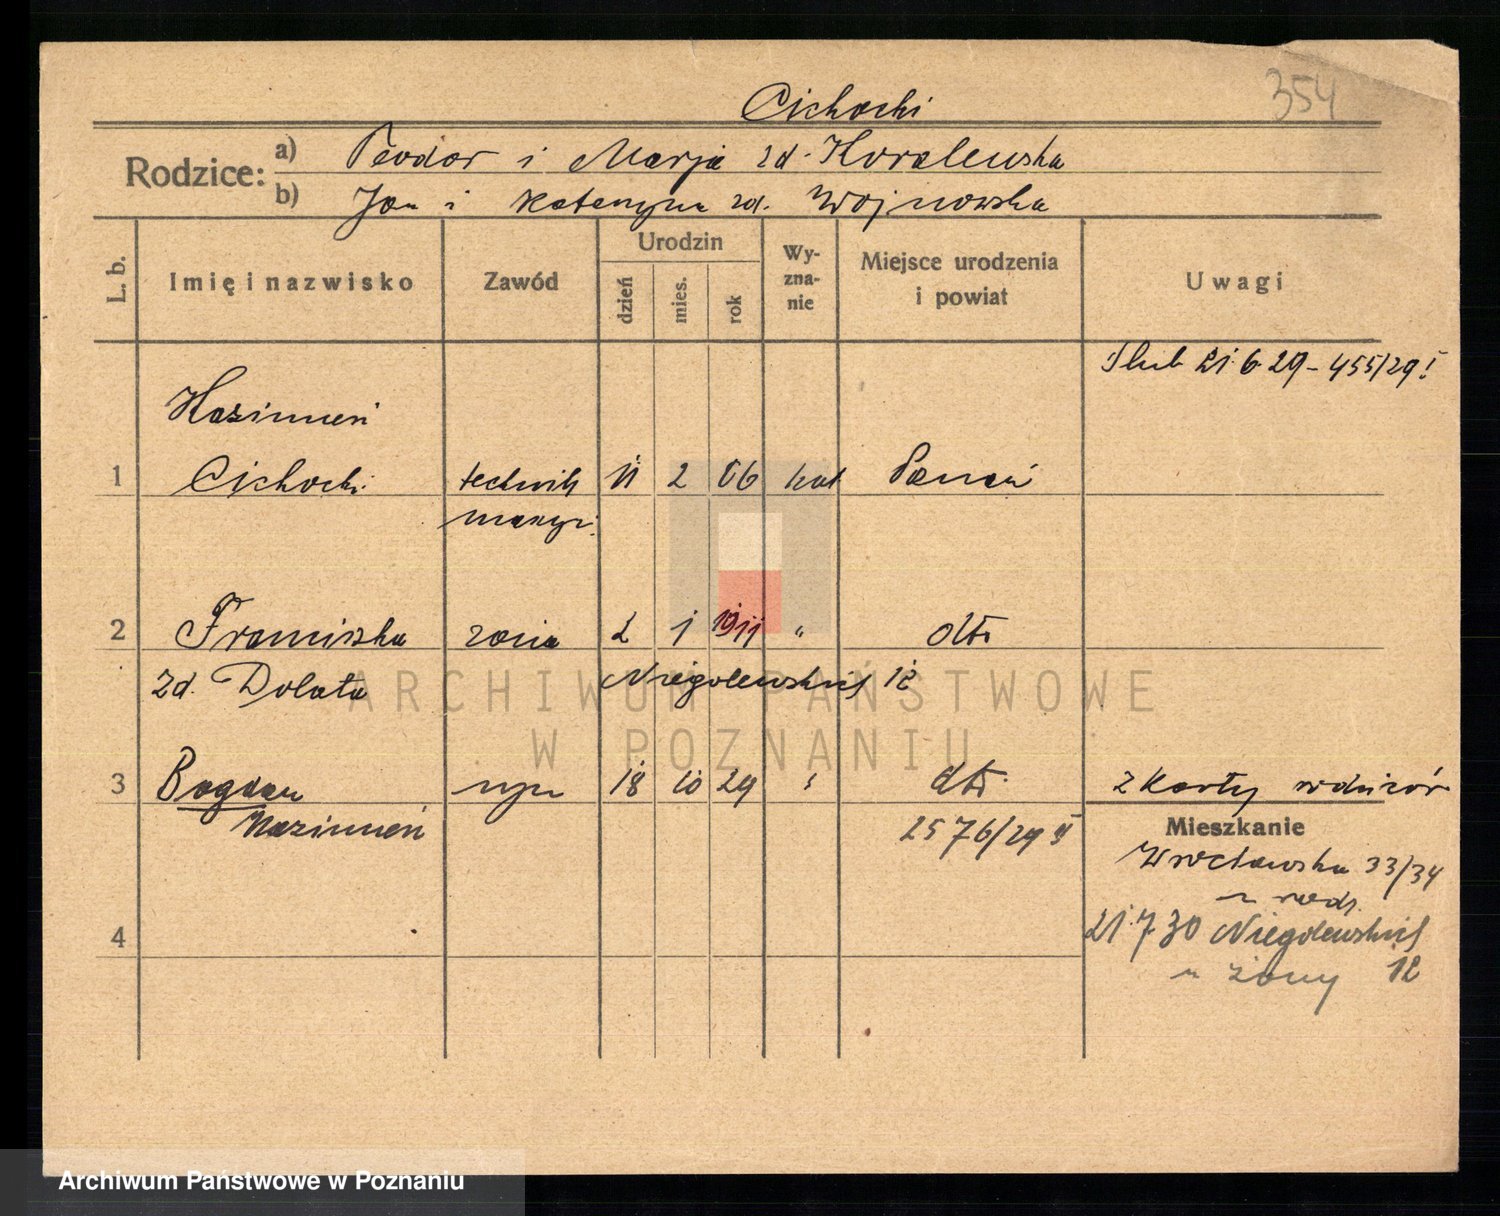 354
Cichocki
Rodzice: a) Teodor i Marja zd. Koralewska
b) Jan i Katarzyna zd. Wojnowska
L. b.
Imię i nazwisko
Zawód
Urodzin
dzień
mies.
rok
Wy-
zna-
nie
Miejsce urodzenia
i powiat
Uwagi
Ślub 21.6.29 - 455/29 I
Kazimierz
1 Cichocki technik 11 2 06 kat Poznań
2 Franciszka żona 2 1 1911 " dto
zd. Dolata Niegolewskich 12
3 Bogdan syn 18 10 29 " dto z karty rodziców
Kazimierz 2576/29 II
Mieszkanie
Wrocławska 33/34
u rodz.
4
21.7.30 Niegolewskich
u żony 12
ARCHIWUM PAŃSTWOWE
W POZNANIU
Archiwum Państwowe w Poznaniu